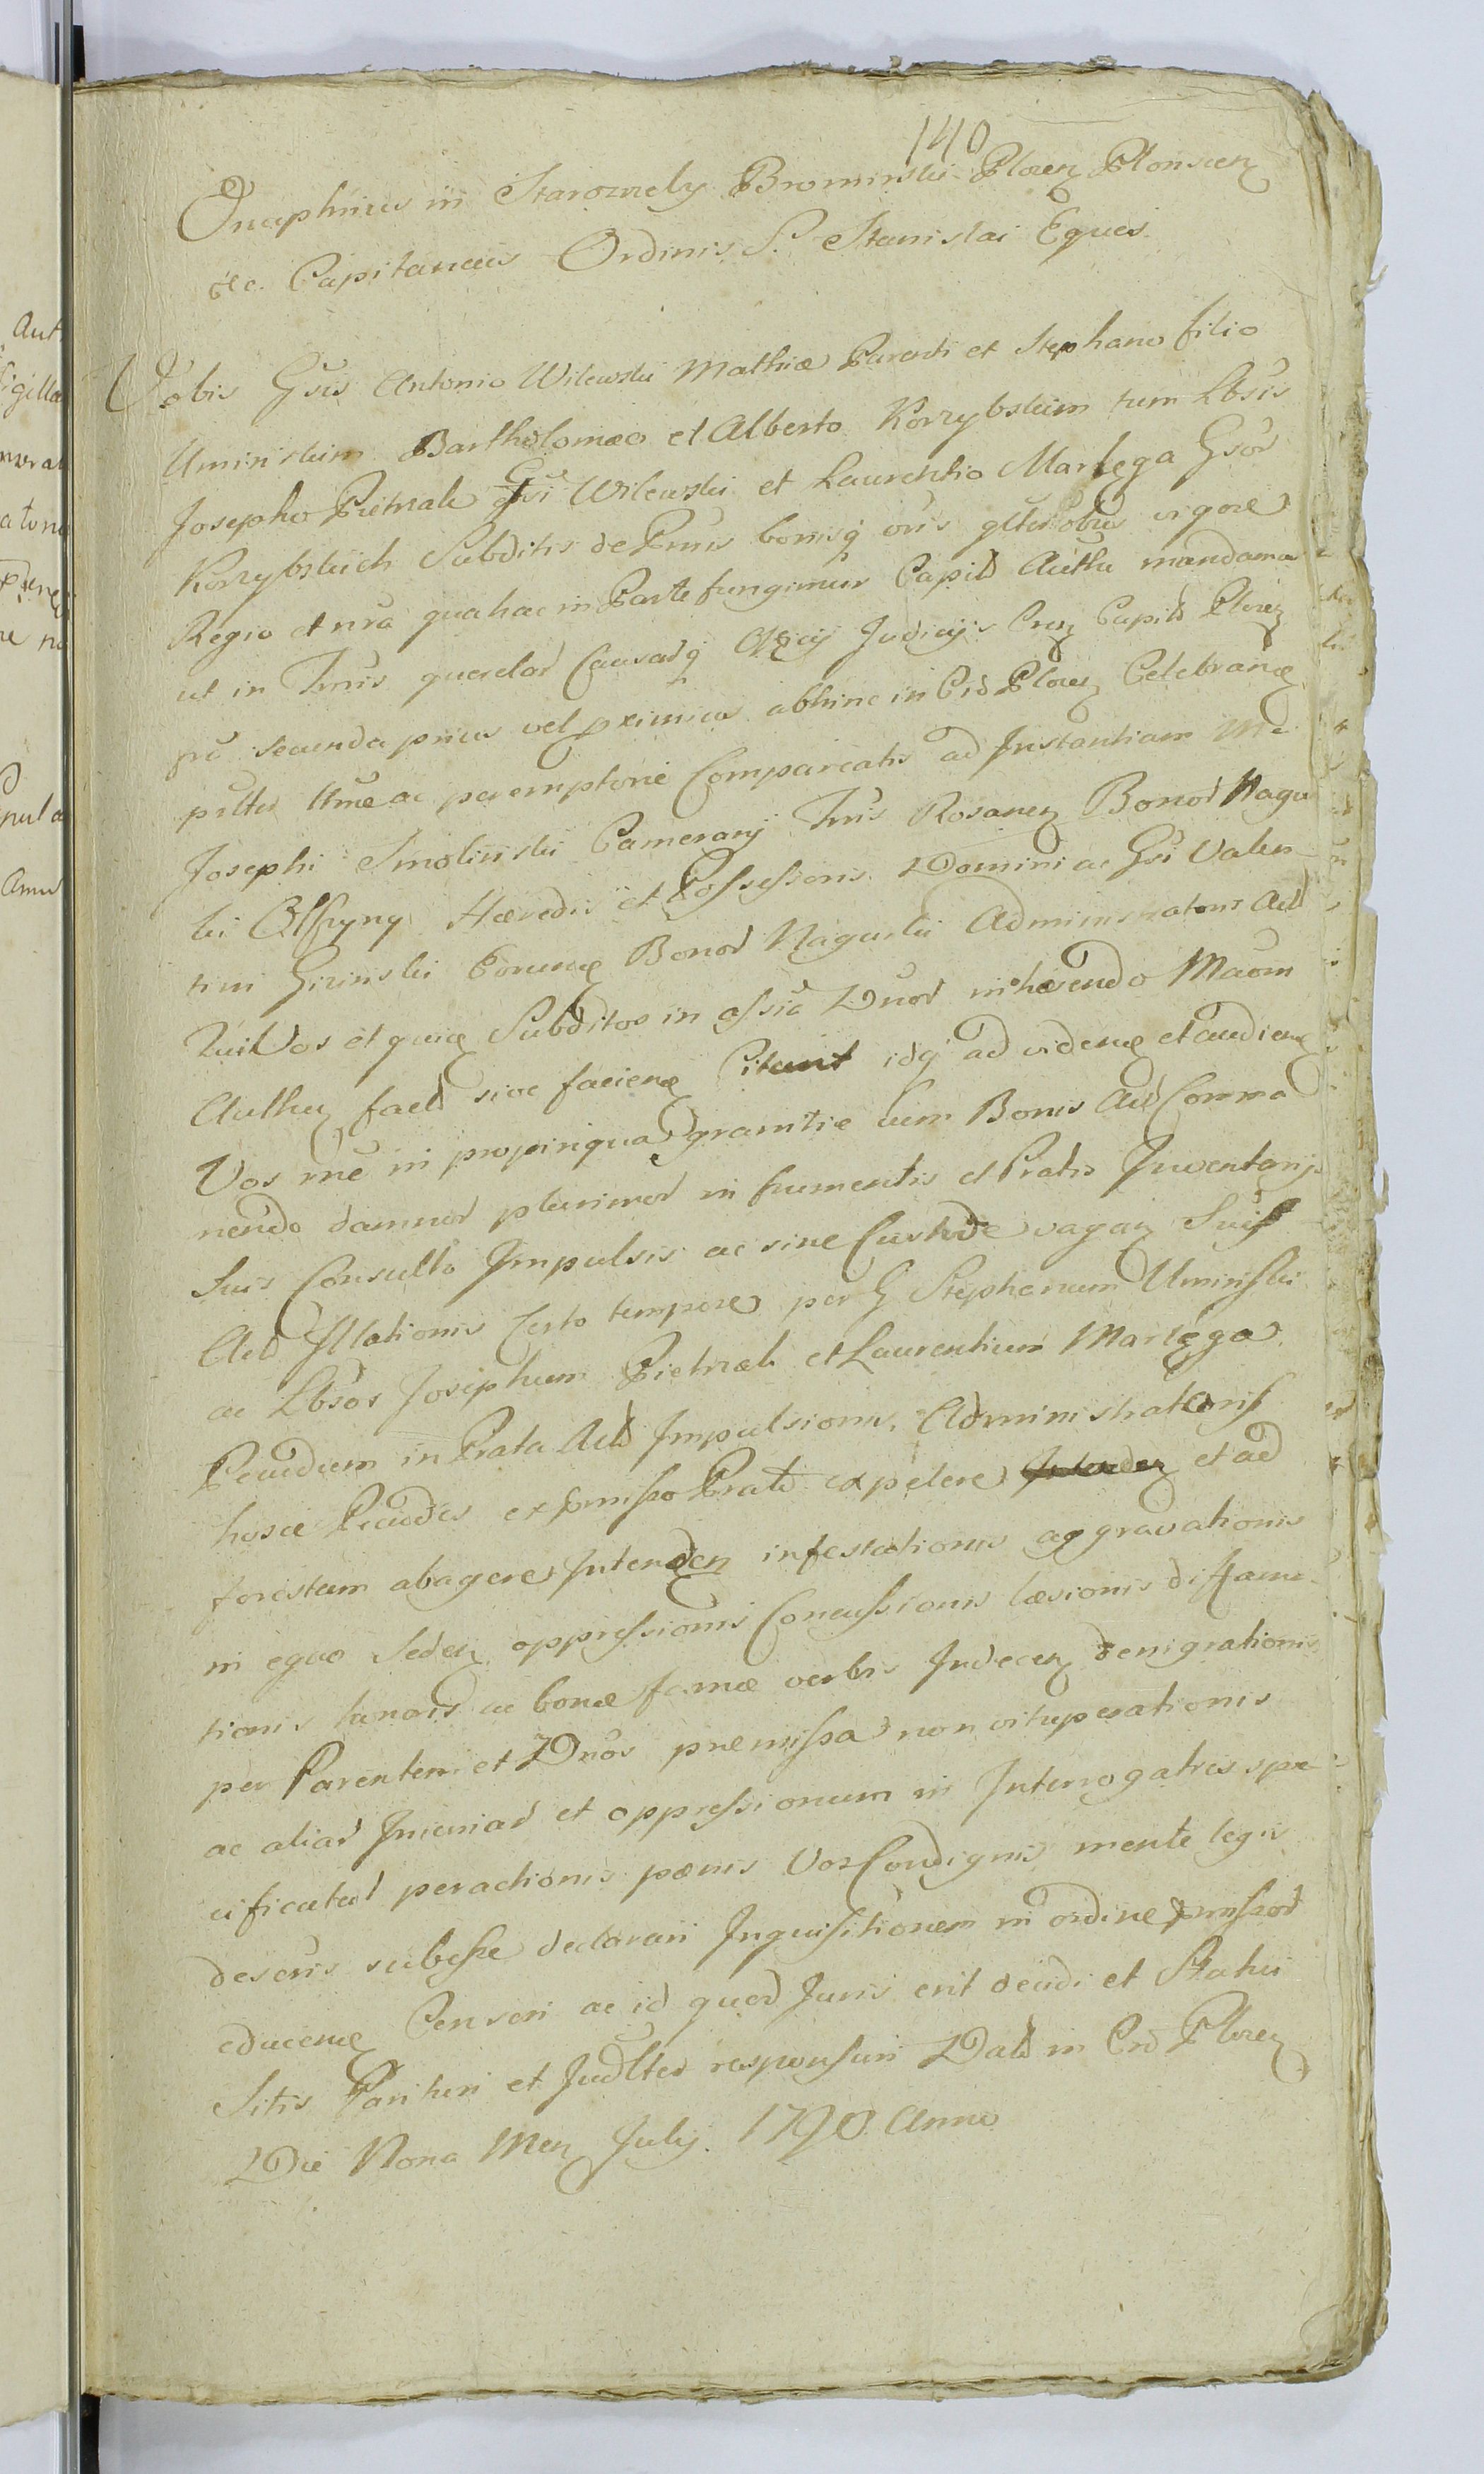 140
Onuphrius in Starozreby Brominski Plocen Plonscen
&c. Capitaneus Ordinis S. Stanislai Eques
Vobis Gsis Antonio Wilewski Mathiæ Parenti et Stephano filio
Uminskim Bartholomæo et Alberto Korzybskim tum Lbsis
Josepho Pietrzak Gsi Wilewski et Laurentio Martęga Gsor
Korzybskich Subditis de Prnis bonisq oris glter obus vigore
Regio et nra qua hac in Parte fungimur Capit Authe mandamus
ut in Tmis querelar Causarq Officij Judicijs Cren Capit Plocen
pro secunda prius vel proximius abhinc in Cro Plocen Celebran
prltes Ime ac peremptorie Compareatis ad Instantiam M
Josephi Smolinski Camerarij Tris Rosanen Bonor Nagu
ki Olszyny Hæredis et Possessoris Domini ac Gsi Valen
tini Girinski Eorum Bonor Nagurki Administratoris Act
Qui Vos et quiq Subditos in assia Dnor inhærendo Maom
Authen fact sive facien Citant idq ad viden et audien
Vos me in propinqua granitie cum Bonis Act Comma
nendo damnor plurimor in frumentis et Pratis Inventarijs
Suis Consulto Impulsis ac sine Custode vagan Suis
Act Illationis Certo tempore per G Stephanum Uminski
ac Lbsos Josephum Pietrzak et Laurentium Martęga
Pecudum in Prata Act Impulsionis, Administratoris
hosce Pecudes ex pmisso Prato expelere et ad
forestum abagere Intenden infestationis aggravationis
in equo Seden oppressionis Concussionis læsionis diffama-
tionis honoris ac bonæ famæ verbis Indecen denigrationis
per Parentem et Dnos præmissa non vituperationis
ac aliar Iniuriar et oppressionum in Interrogatris spe
cificatar peractionis pænis Vos Condignis mente legis
descris subesse declarari Inquisitionem in ordine pmissor
educen Censeri ac id quod Juris erit decidi et Statui
Sitis Parituri et Judlter responsuri Dat in Cro Plocen
Die Nona Men Julij. 1790 Anno